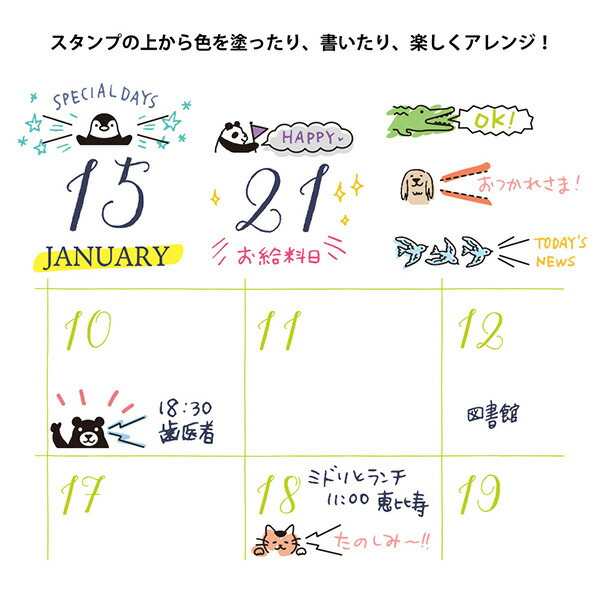 スタンプの上から色を塗ったり、書いたり、楽しくアレンジ!
SPECIAL DAYS
15
JANUARY
HAPPY
21
お給料日
OK!
おつかれさま!
TODAY'S
NEWS
10
18:30
歯医者
11
12
図書館
17
18
ミドリとランチ
11:00 恵比寿
たのしみ〜!!
19